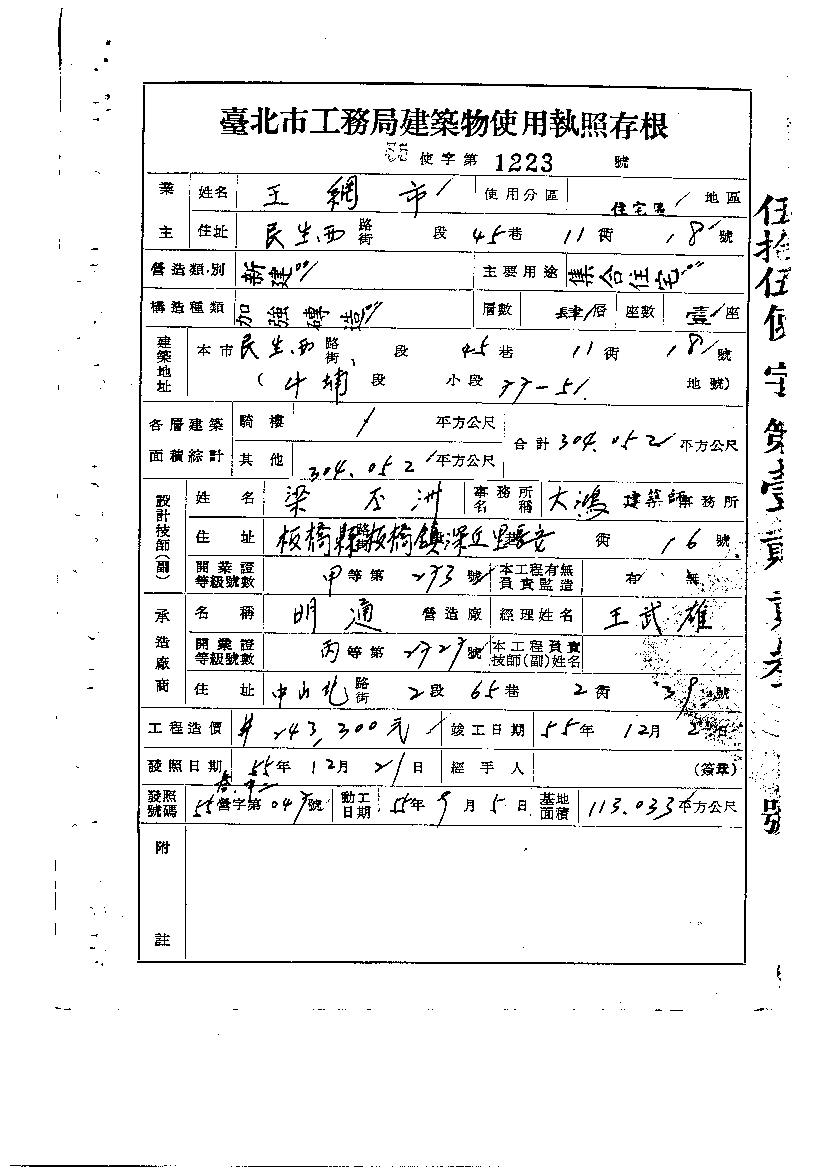 臺北市工務局建築物使用執照存根
55 使字第 1223 號
業主 姓名 王網市 使用分區 住宅區 地區
住址 民生西 路街 段 45巷 11衖 18號
營造類別 新建 主要用途 集合住宅
構造種類 加強磚造 層數 肆層 座數 壹座
建築地址 本市民生西 路街 段 45巷 11衖 18號
(牛埔段 小段 77-51 地號)
各層建築面積綜計 騎樓 / 平方公尺 合計 304.052 平方公尺
其他 304.052 平方公尺
設計技師(副) 姓名 梁 洲 事務所名稱 大鴻建築師事務所
住址 板橋鎮深丘里 衖 16號
開業證等級號數 甲等第 273號 本工程有無負責監造 有 無
承造廠商 名稱 明通 營造廠 經理姓名 王武雄
開業證等級號數 丙等第 2727號 本工程負責技師(副)姓名
住址 中山北 路街 2段 65巷 2衖 39號
工程造價 # 243,300元 竣工日期 55年12月2日
發照日期 55年12月21日 經手人 (簽章)
發照號碼 55營字第047號 動工日期 55年9月5日 基地面積 113.033平方公尺
附註
伍拾伍使字第壹貳貳叁號